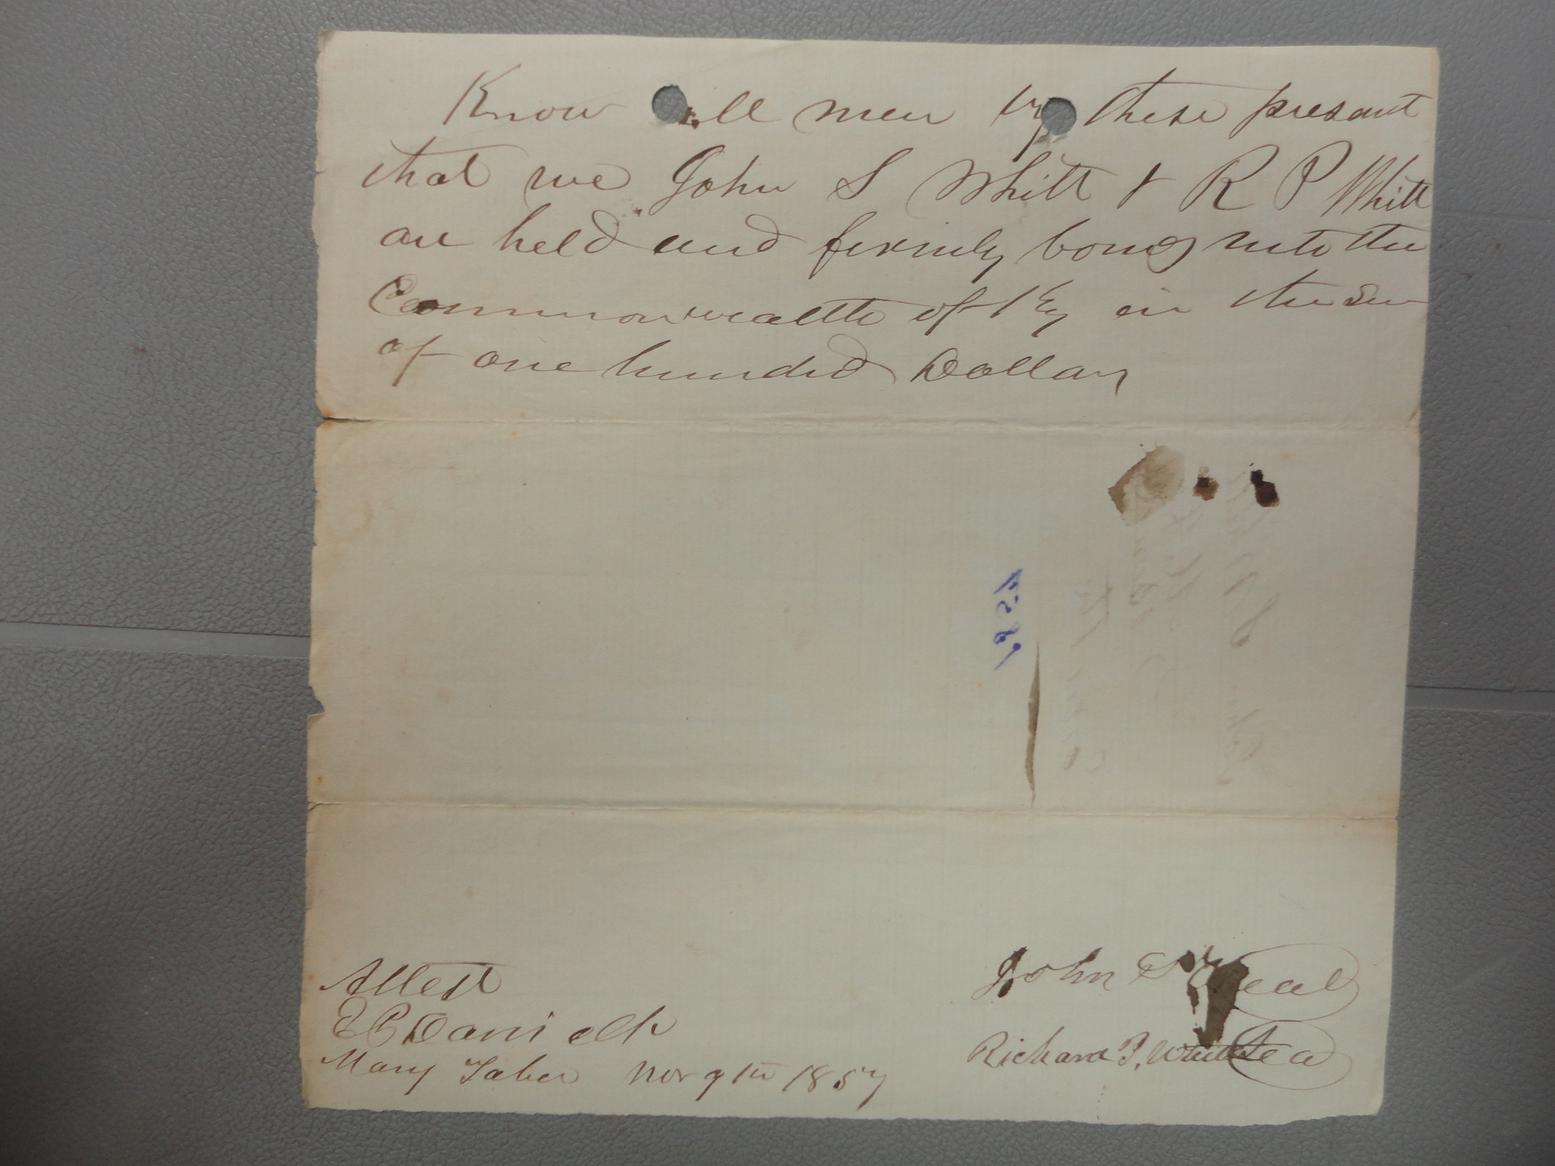 Know all men by these present
that we John S Whitt & R P Whitt
are held and firmly boun unto the
Commonwealth of Ky in the sum
of one hundred Dollars
Attest
E C Daniel clk
Mary Taber Nov 9th 1857
John S Seal
Richard P. Whitt Seal